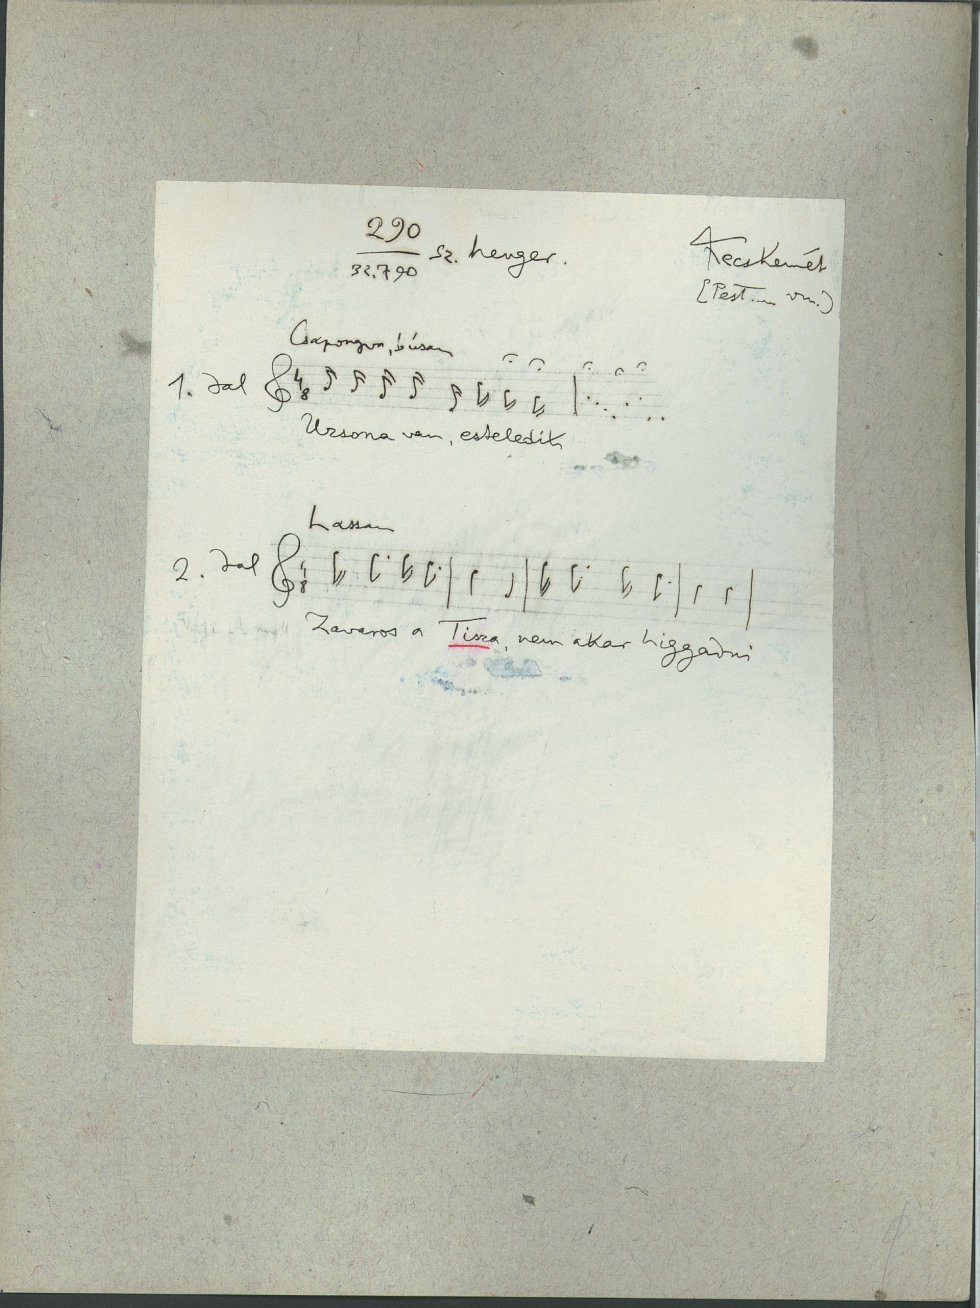 290
32.790 sz. henger.
Kecskemét
(Pest... vm.)
Csapongva, búsan
1. dal 4 8
Uzsona van, esteledik
Lassan
2. dal 4 8
Zavaros a Tisza, nem akar higgadni